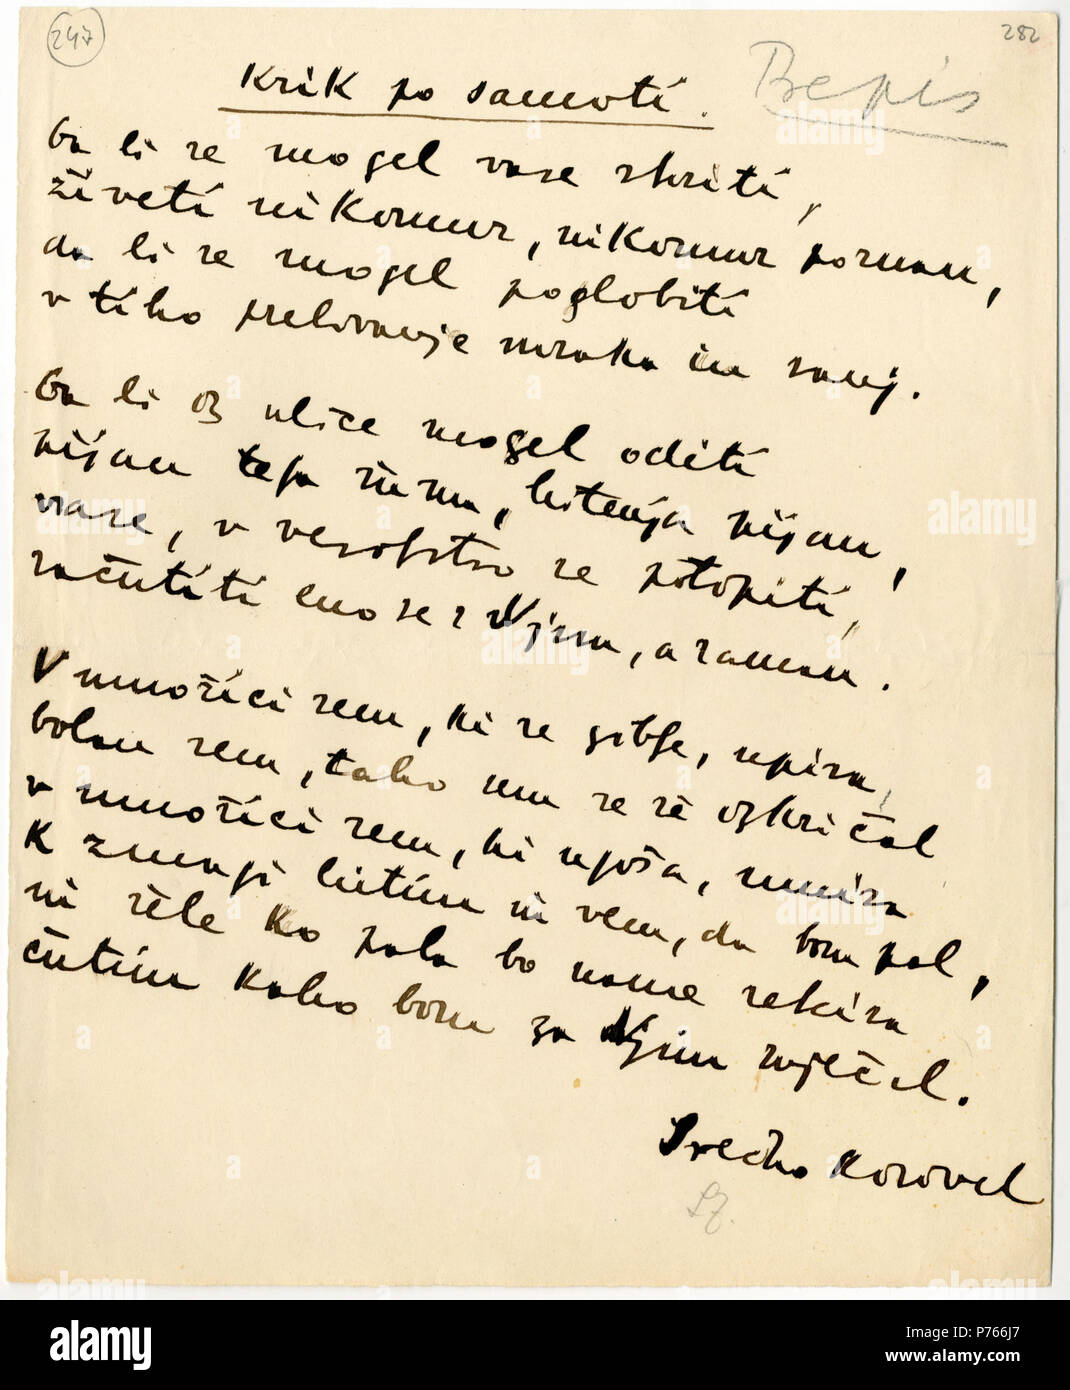 247
282
Prepis
Krik po samoti.
Da bi se mogel vase skriti,
živeti nikomur, nikomur poznan,
da bi se mogel poglobiti
v tiho prelivanje mraka in sanj.
Da bi iz ulice mogel oditi
pijan tega šuma, hitenja pijan,
vase, v vesoljstvo se potopiti,
začutiti eno se z Njim, a zaman.
V množici sem, ki se giblje, upira,
bolan sem, tako sem se že izkričal
v množici sem, ki ugaša, umira
K zmagi hitim in vem, da bom pal,
in šele ko pala bo name sekira
čutim kako bom za Njim zaječal.
Srečko Kosovel
SZ.
alamy
alamy
Image ID: P766J7
www.alamy.com